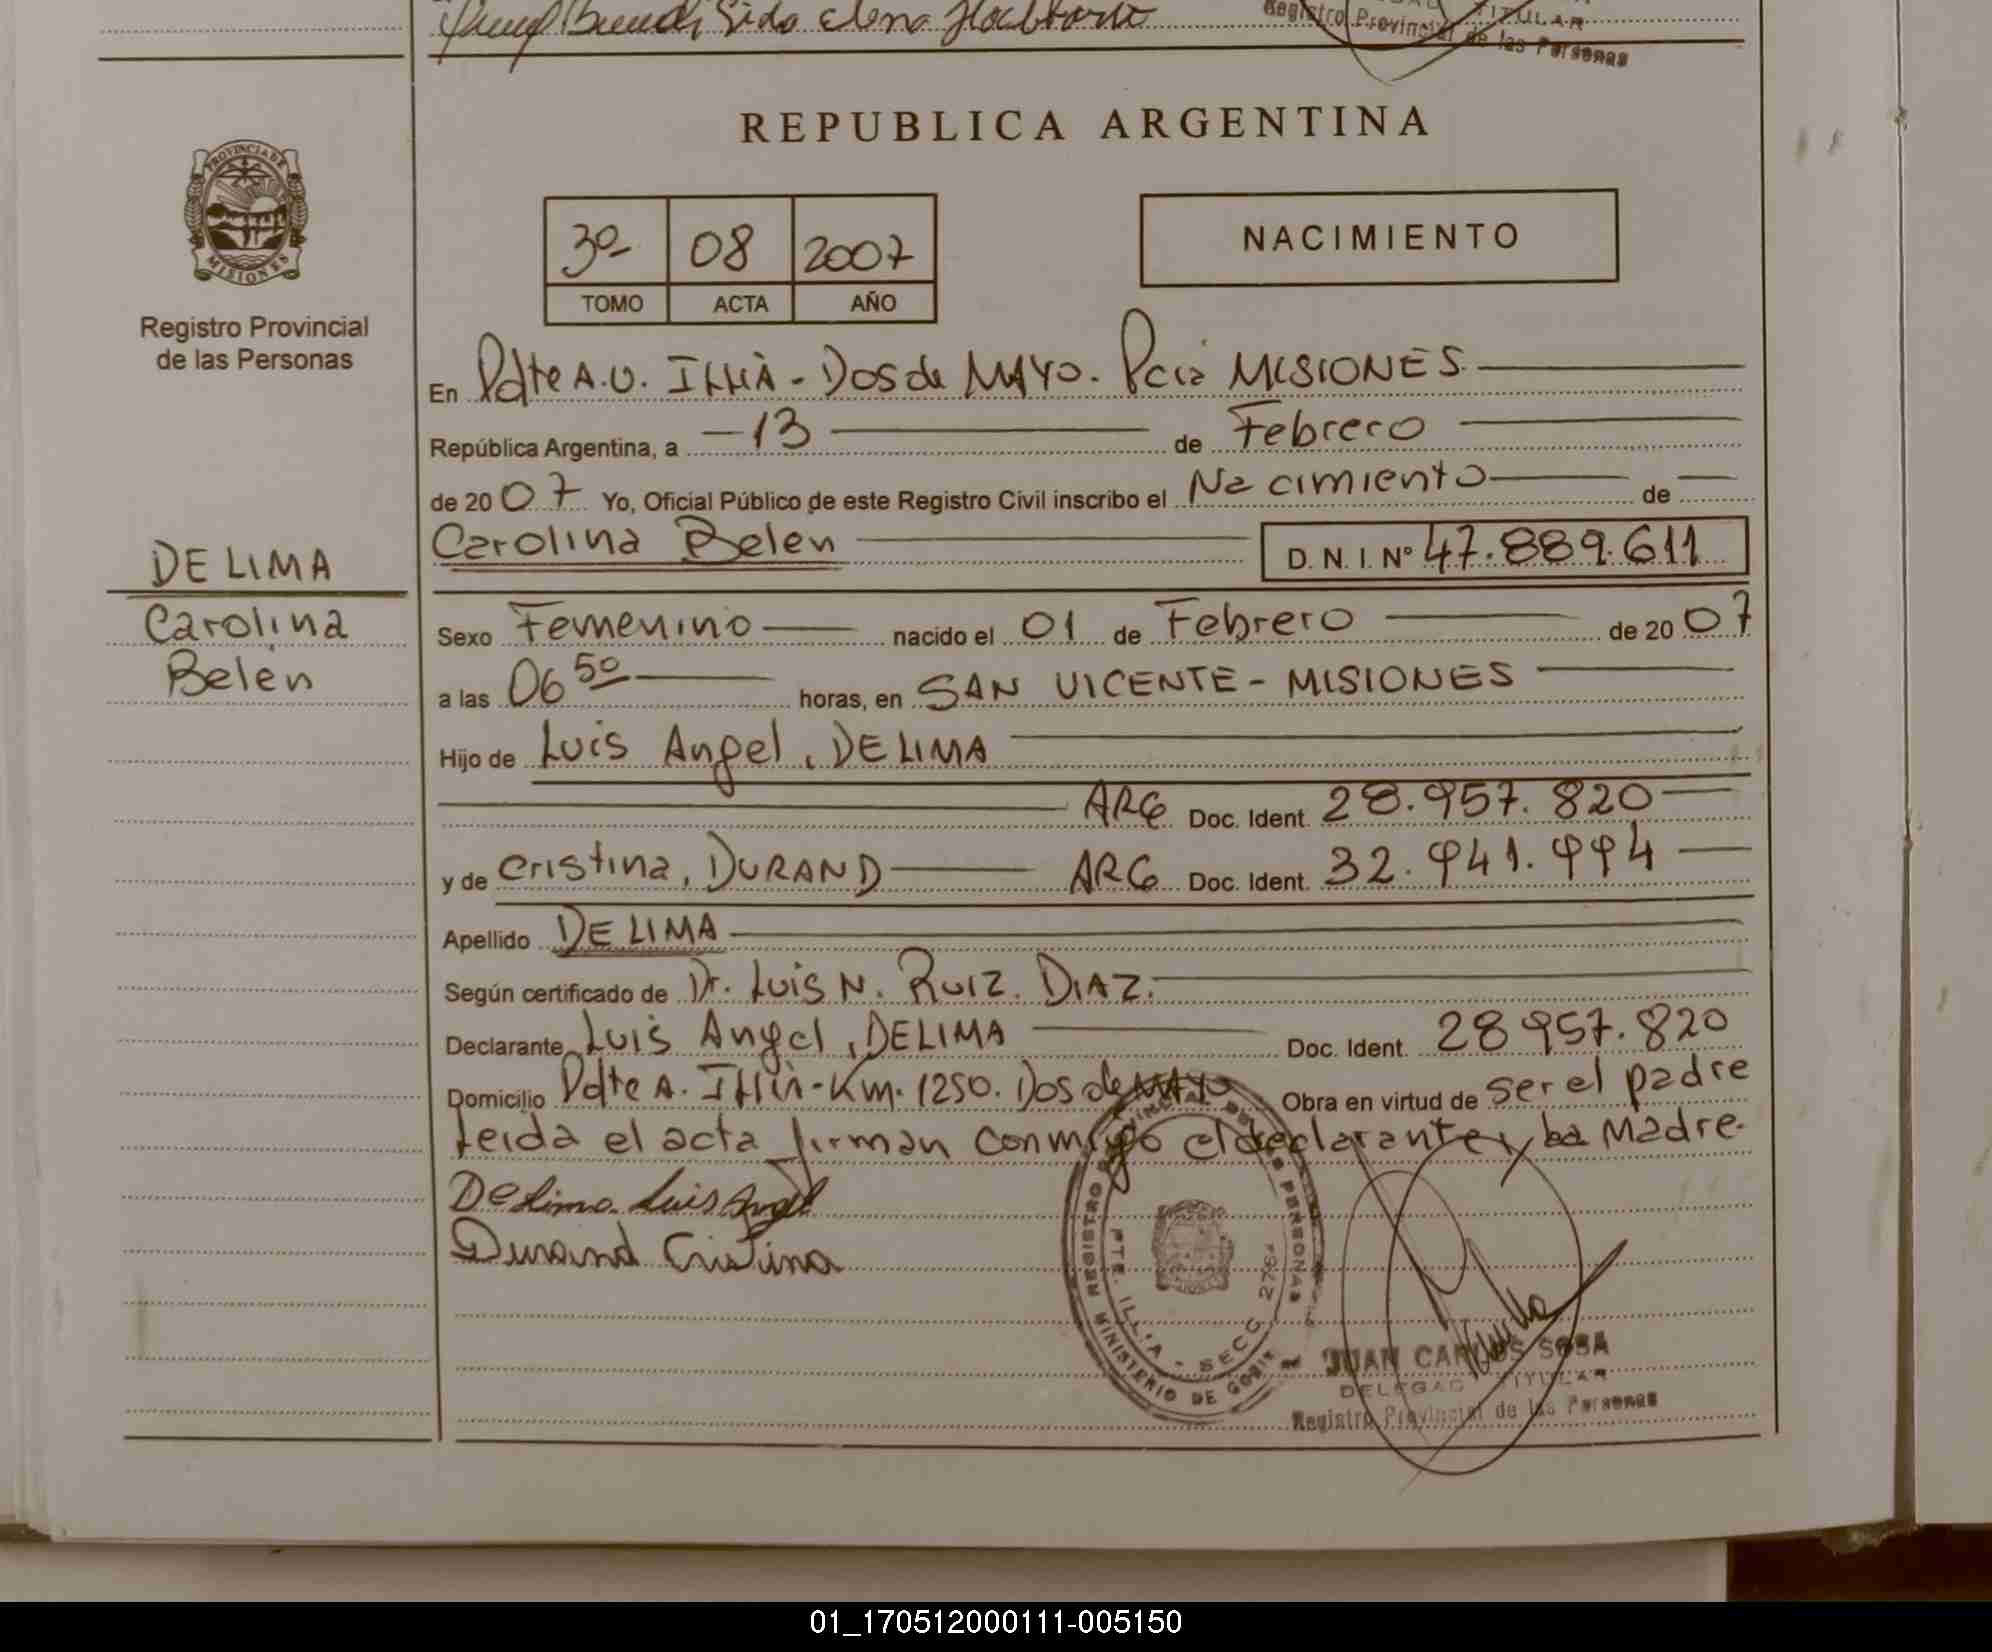 Sido Elena
TITULAR
Registro Provincial de las Personas
REPUBLICA ARGENTINA
PROVINCIA DE
MISIONES
Registro Provincial
de las Personas
3º 08 2007
TOMO ACTA AÑO
NACIMIENTO
En Pdte A.U. ILLIA - Dos de MAYO. Pcia MISIONES
República Argentina, a 13 de Febrero
de 2007 Yo, Oficial Público de este Registro Civil inscribo el Nacimiento de
Carolina Belen D. N. I. Nº 47.889.611
DE LIMA
Carolina
Belén
Sexo Femenino nacido el 01 de Febrero de 2007
a las 06 50 horas, en SAN VICENTE - MISIONES
Hijo de Luis Angel, DE LIMA
ARG Doc. Ident. 28.957.820
y de Cristina, DURAND ARG Doc. Ident. 32.941.994
Apellido DE LIMA
Según certificado de Dr. Luis N. Ruiz. Diaz.
Declarante Luis Angel, DELIMA Doc. Ident. 28957.820
Domicilio Pdte A. Illia - Km. 1250. Dos de MAYO Obra en virtud de ser el padre
Leida el acta firman conmigo el declarante y la Madre.
De Lima Luis Angel
Durand Cristina
MINISTERIO DE
REGISTRO
PERSONAS
PTE. ILLIA - SECC 2787
JUAN CARLOS SOSA
DELEGADO TITULAR
Registro Provincial de las Personas
01_170512000111-005150